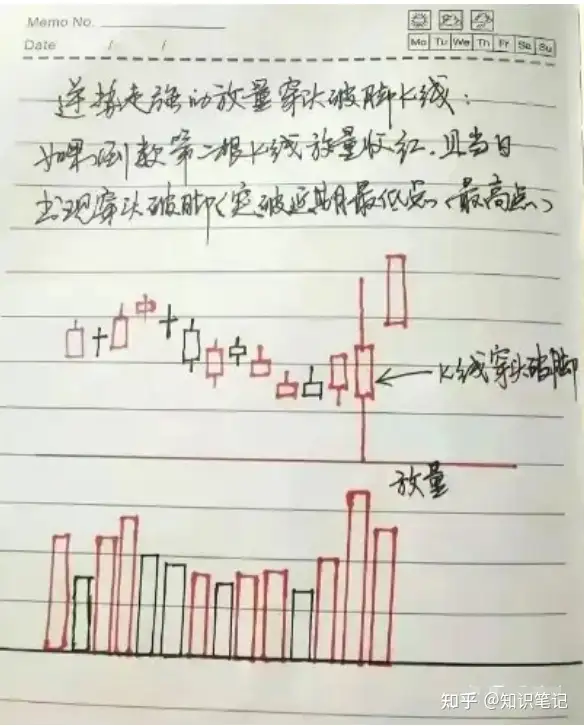 Memo No.
Date / /
Mo Tu We Th Fr Sa Su
逆势走强的放量穿头破脚K线：
如果倒数第二根K线放量收红，且当日
出现穿头破脚（突破近期最低点、最高点）
K线穿头破脚
放量
知乎 @知识笔记